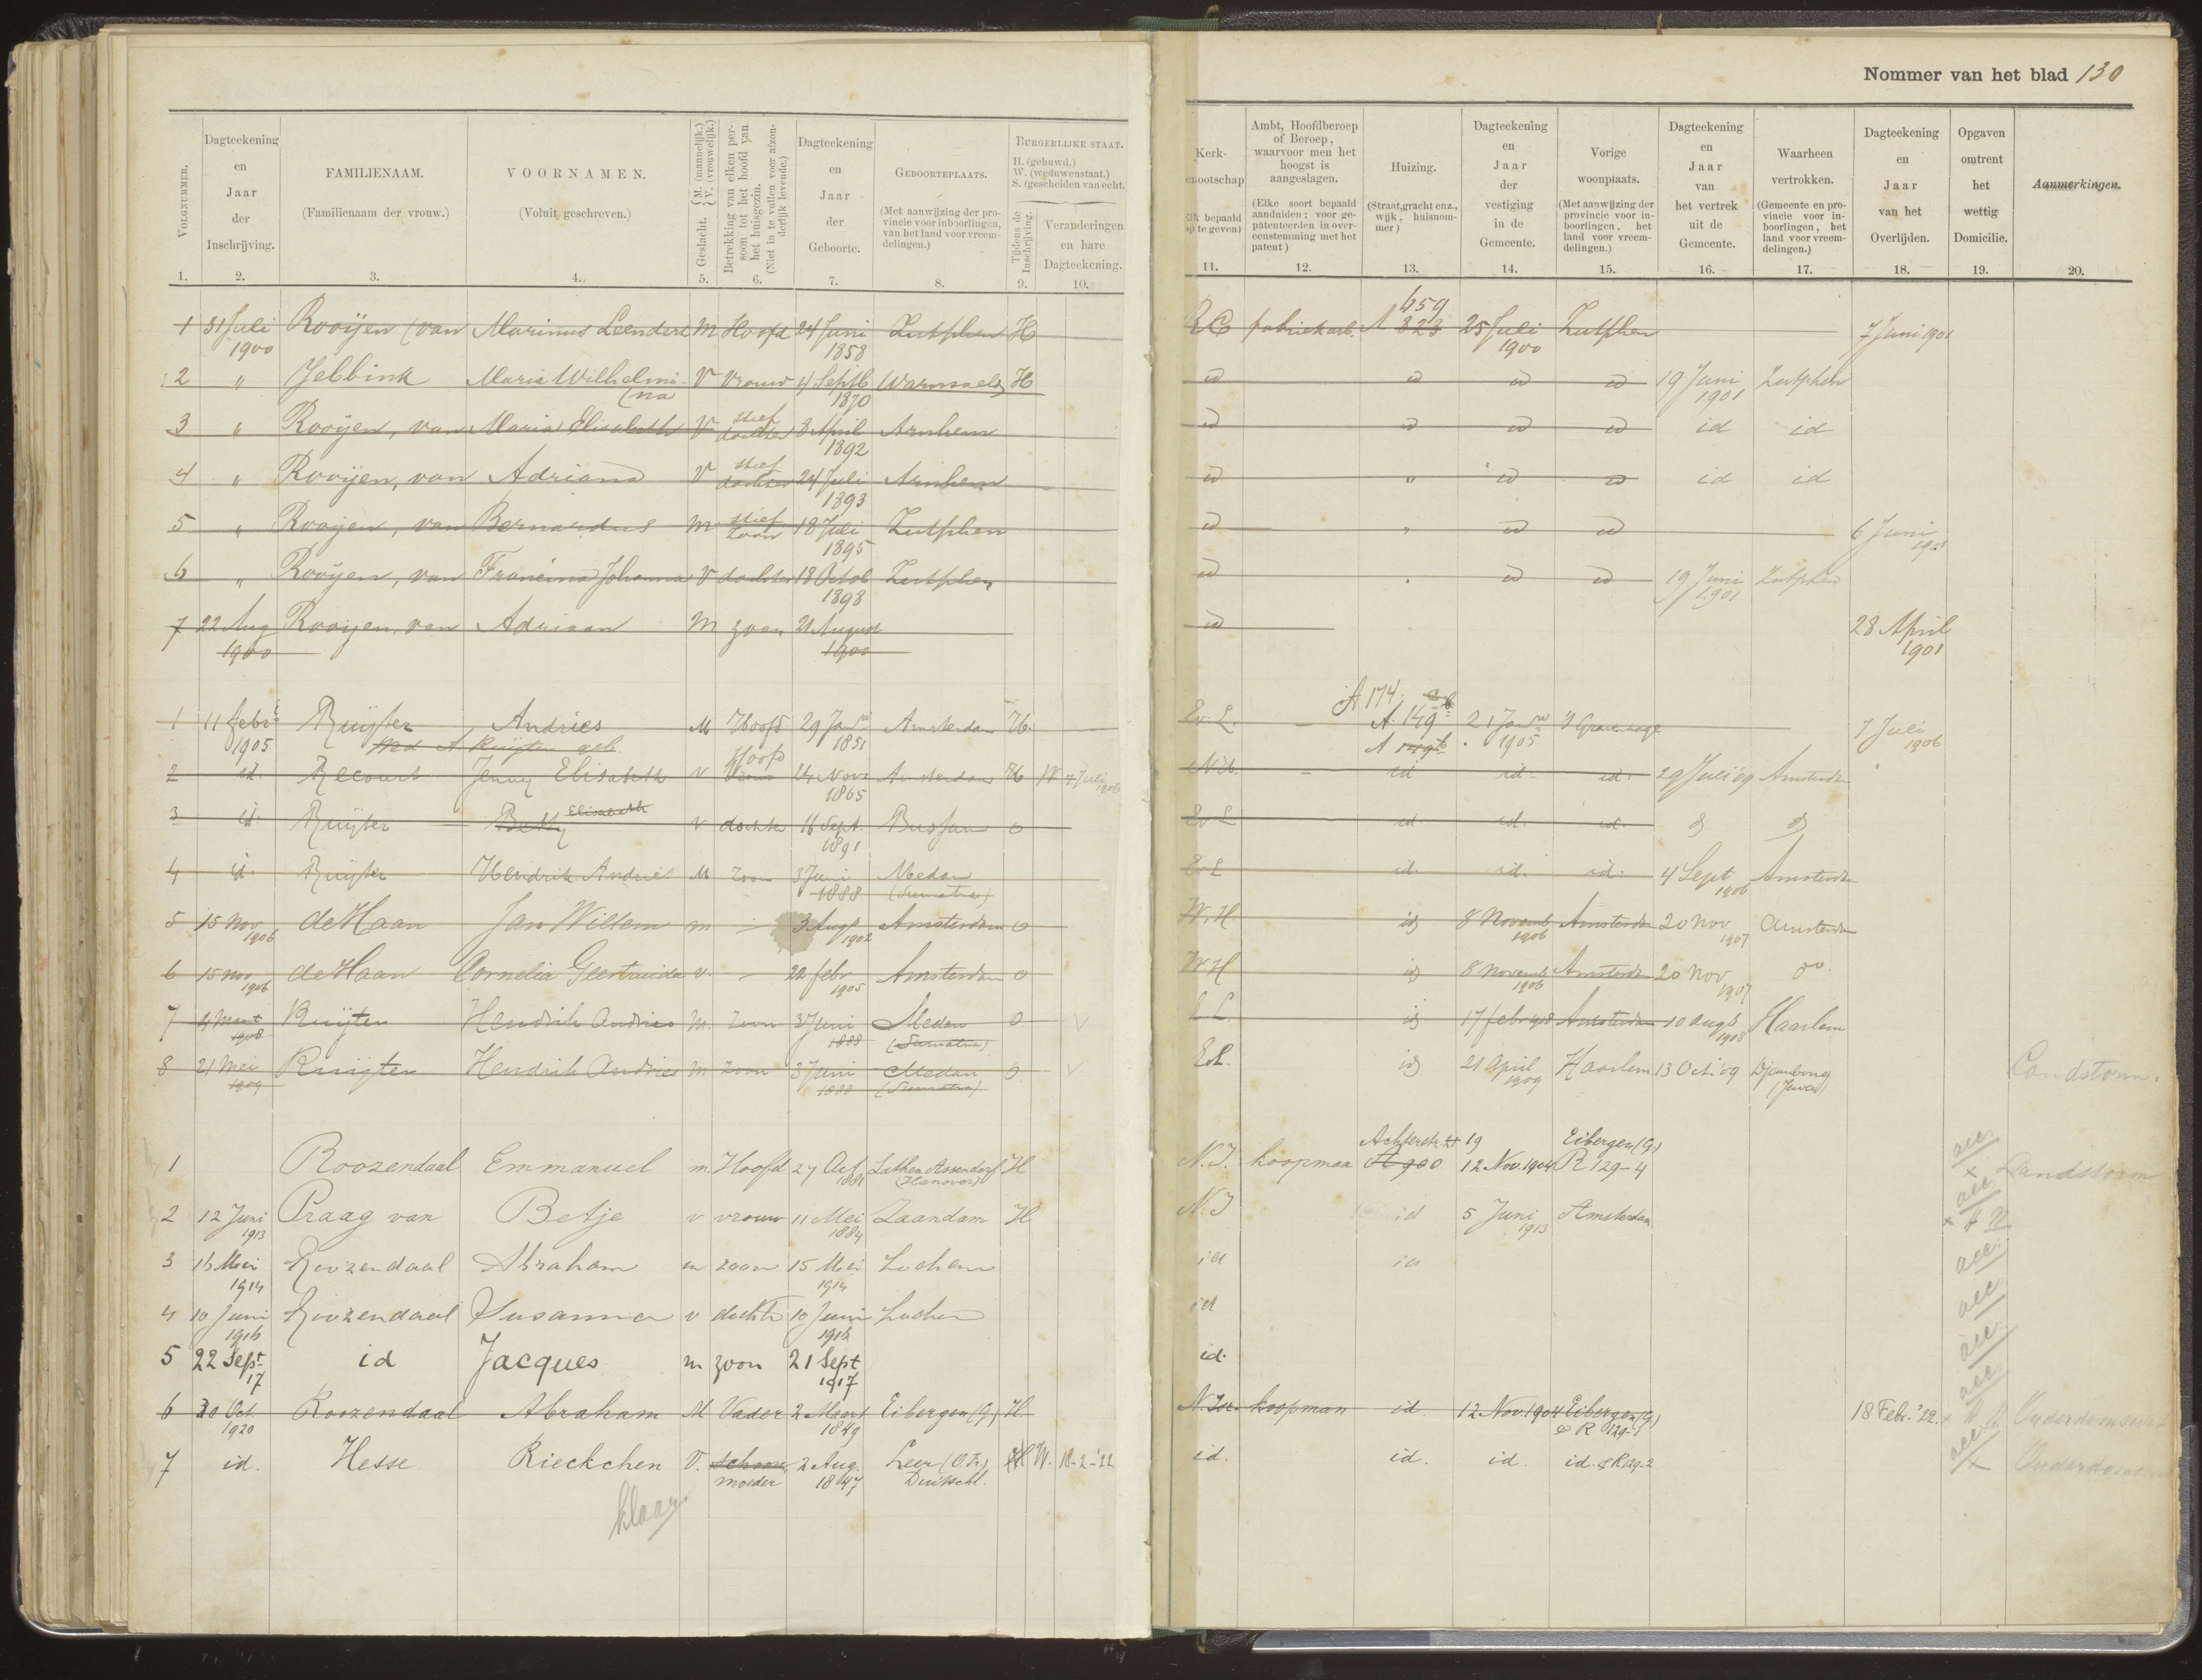 Nommer van het blad 130
VOLGNUMMER. 1.
Dagteekening en Jaar der Inschrijving. 2.
FAMILIENAAM. (Familienaam der vrouw.) 3.
VOORNAMEN. (Voluit geschreven.) 4.
Geslacht. {M. (mannelijk.) V. (vrouwelijk.) 5.
Betrekking van elken persoon tot het hoofd van het huisgezin. (Niet in te vullen voor afzonderlijk levende.) 6.
Dagteekening en Jaar der Geboorte. 7.
GEBOORTEPLAATS. (Met aanwijzing der provincie voor inboorlingen, van het land voor vreemdelingen.) 8.
BURGERLIJKE STAAT. H. (gehuwd.) W. (weduwenstaat.) S. (gescheiden van echt.)
Tijdens de Inschrijving. 9.
Veranderingen en hare Dagteekening. 10.
Kerk- 11.
Ambt, Hoofdberoep of Beroep, waarvoor men het hoogst is aangeslagen. (Elke soort bepaald aanduiden; voor gepatenteerden in overeenstemming met het patent) 12.
Huizing. (Straat, gracht enz., wijk, huisnommer) 13.
Dagteekening en Jaar der vestiging in de Gemeente. 14.
Vorige woonplaats. (Met aanwijzing der provincie voor inboorlingen, het land voor vreemdelingen.) 15.
Dagteekening en Jaar van het vertrek uit de Gemeente. 16.
Waarheen vertrokken. (Gemeente en provincie voor inboorlingen, het land voor vreemdelingen.) 17.
Dagteekening en Jaar van het Overlijden. 18.
Opgaven omtrent het wettig Domicilie. 19.
Aanmerkingen. 20.
1 31 Juli 1900 Rooijen (van Marinus Leendert M Hoofd 24 Juni 1858 Zutphen H RC fabriekarb. A 823 659 25 Juli 1900 Zutphen 7 Juni 1901
2 " Jebbink Maria Wilhelmi(na V Vrouw 4 Septb 1870 Warnsveld H id id id id 19 Juni 1901 Zutphen
3 " Rooijen, van Maria Elisabeth V stief dochter 8 April 1892 Arnhem id id id id id id
4 " Rooijen, van Adriana V stief dochter 24 Juli 1893 Arnhem id " id id id id
5 " Rooijen, van Bernardus M stief zoon 18 Juli 1895 Zutphen id " id id 6 Juni 1901
6 " Rooijen, van Francina Johanna V dochter 18 Octob 1898 Zutphen id id id 19 Juni 1901 Zutphen
7 22 Aug 1900 Rooijen, van Adriaan M zoon 21 August 1900 id 28 April 1901
A 174.
1 11 febr 1905 Ruijter Andries M Hoofd 29 Jan 1851 Amsterdam H. Ev. L. A. 149 21 Jan 1905 's Gravenhage 7 Juli 1906
Wed A Ruijter geb.
2 id. Recourt Jenny Elisabeth v Hoofd Vrouw 24 Nov 1865 Amsterdam H W 7 Juli 1906 id id. id. 29 Juli 09 Amsterdam
3 id. Ruijter Betty Elisabeth v dochter 16 Sept. 1891 Bussum o Ev. L id. id. id.
4 id. Ruijter Hendrik Andries M zoon 3 Juni 1888 Medan (Sumatra) Ev L id. id. id. 4 Sept 1906 Amsterdam
5 15 Nov 1906 de Haan Jan Willem m - 3 Augs 1902 Amsterdam o W. H id 8 Novemb 1906 Amsterdam 20 Nov 1907 Amsterdam
6 15 Nov 1906 de Haan Cornelia Geertruida v. - 22 febr 1905 Amsterdam o W H id 8 Novemb 1906 Amsterdam 20 Nov 1907 do.
7 11 Maart 1908 Ruijter Hendrik Andries M. zoon 3 Juni 1888 Medan (Sumatra) o V E. L. id 17 febr 1908 Amsterdam 10 Augs 1908 Haarlem
8 21 Mei 1909 Ruijter Hendrik Andries M zoon 3 Juni 1888 Medan (Sumatra) o V E.L. id 21 April 1909 Haarlem 13 Oct '09 Djembong (Java) Landstorm.
1 Roozendaal Emmanuel m Hoofd 27 Oct 1881 Lathen Assendorf (Hanover) H N.I. koopman Achterstr. 19 A 900 12 Nov. 1904 Eibergen (G) R 129-4 acc Landstorm
2 12 Juni 1913 Praag van Betje v vrouw 11 Mei 1884 Zaandam H N.I id 5 Juni 1913 Amsterdam acc
3 16 Mei 1914 Roozendaal Abraham m zoon 15 Mei 1914 Lochem id id acc
4 10 Juni 1916 Roozendaal Susanna v dochter 10 Juni 1916 Lochem id acc
5 22 Sept 17 id Jacques m zoon 21 Sept 1917 id. acc
6 30 Oct 1920 Roozendaal Abraham M Vader 2 Maart 1849 Eibergen (G) H N. Isr. koopman id. 12 Nov. 1904 Eibergen (G) R 129-1 18 Febr. '22. acc Ouderdomsrent
7 id. Hesse Rieckchen V. schoon moeder 2 Aug. 1847 Leer (O. Fr.) Duitschl. H W. 18-2-'22 id. id. id. id. R 129-2 acc
klaar